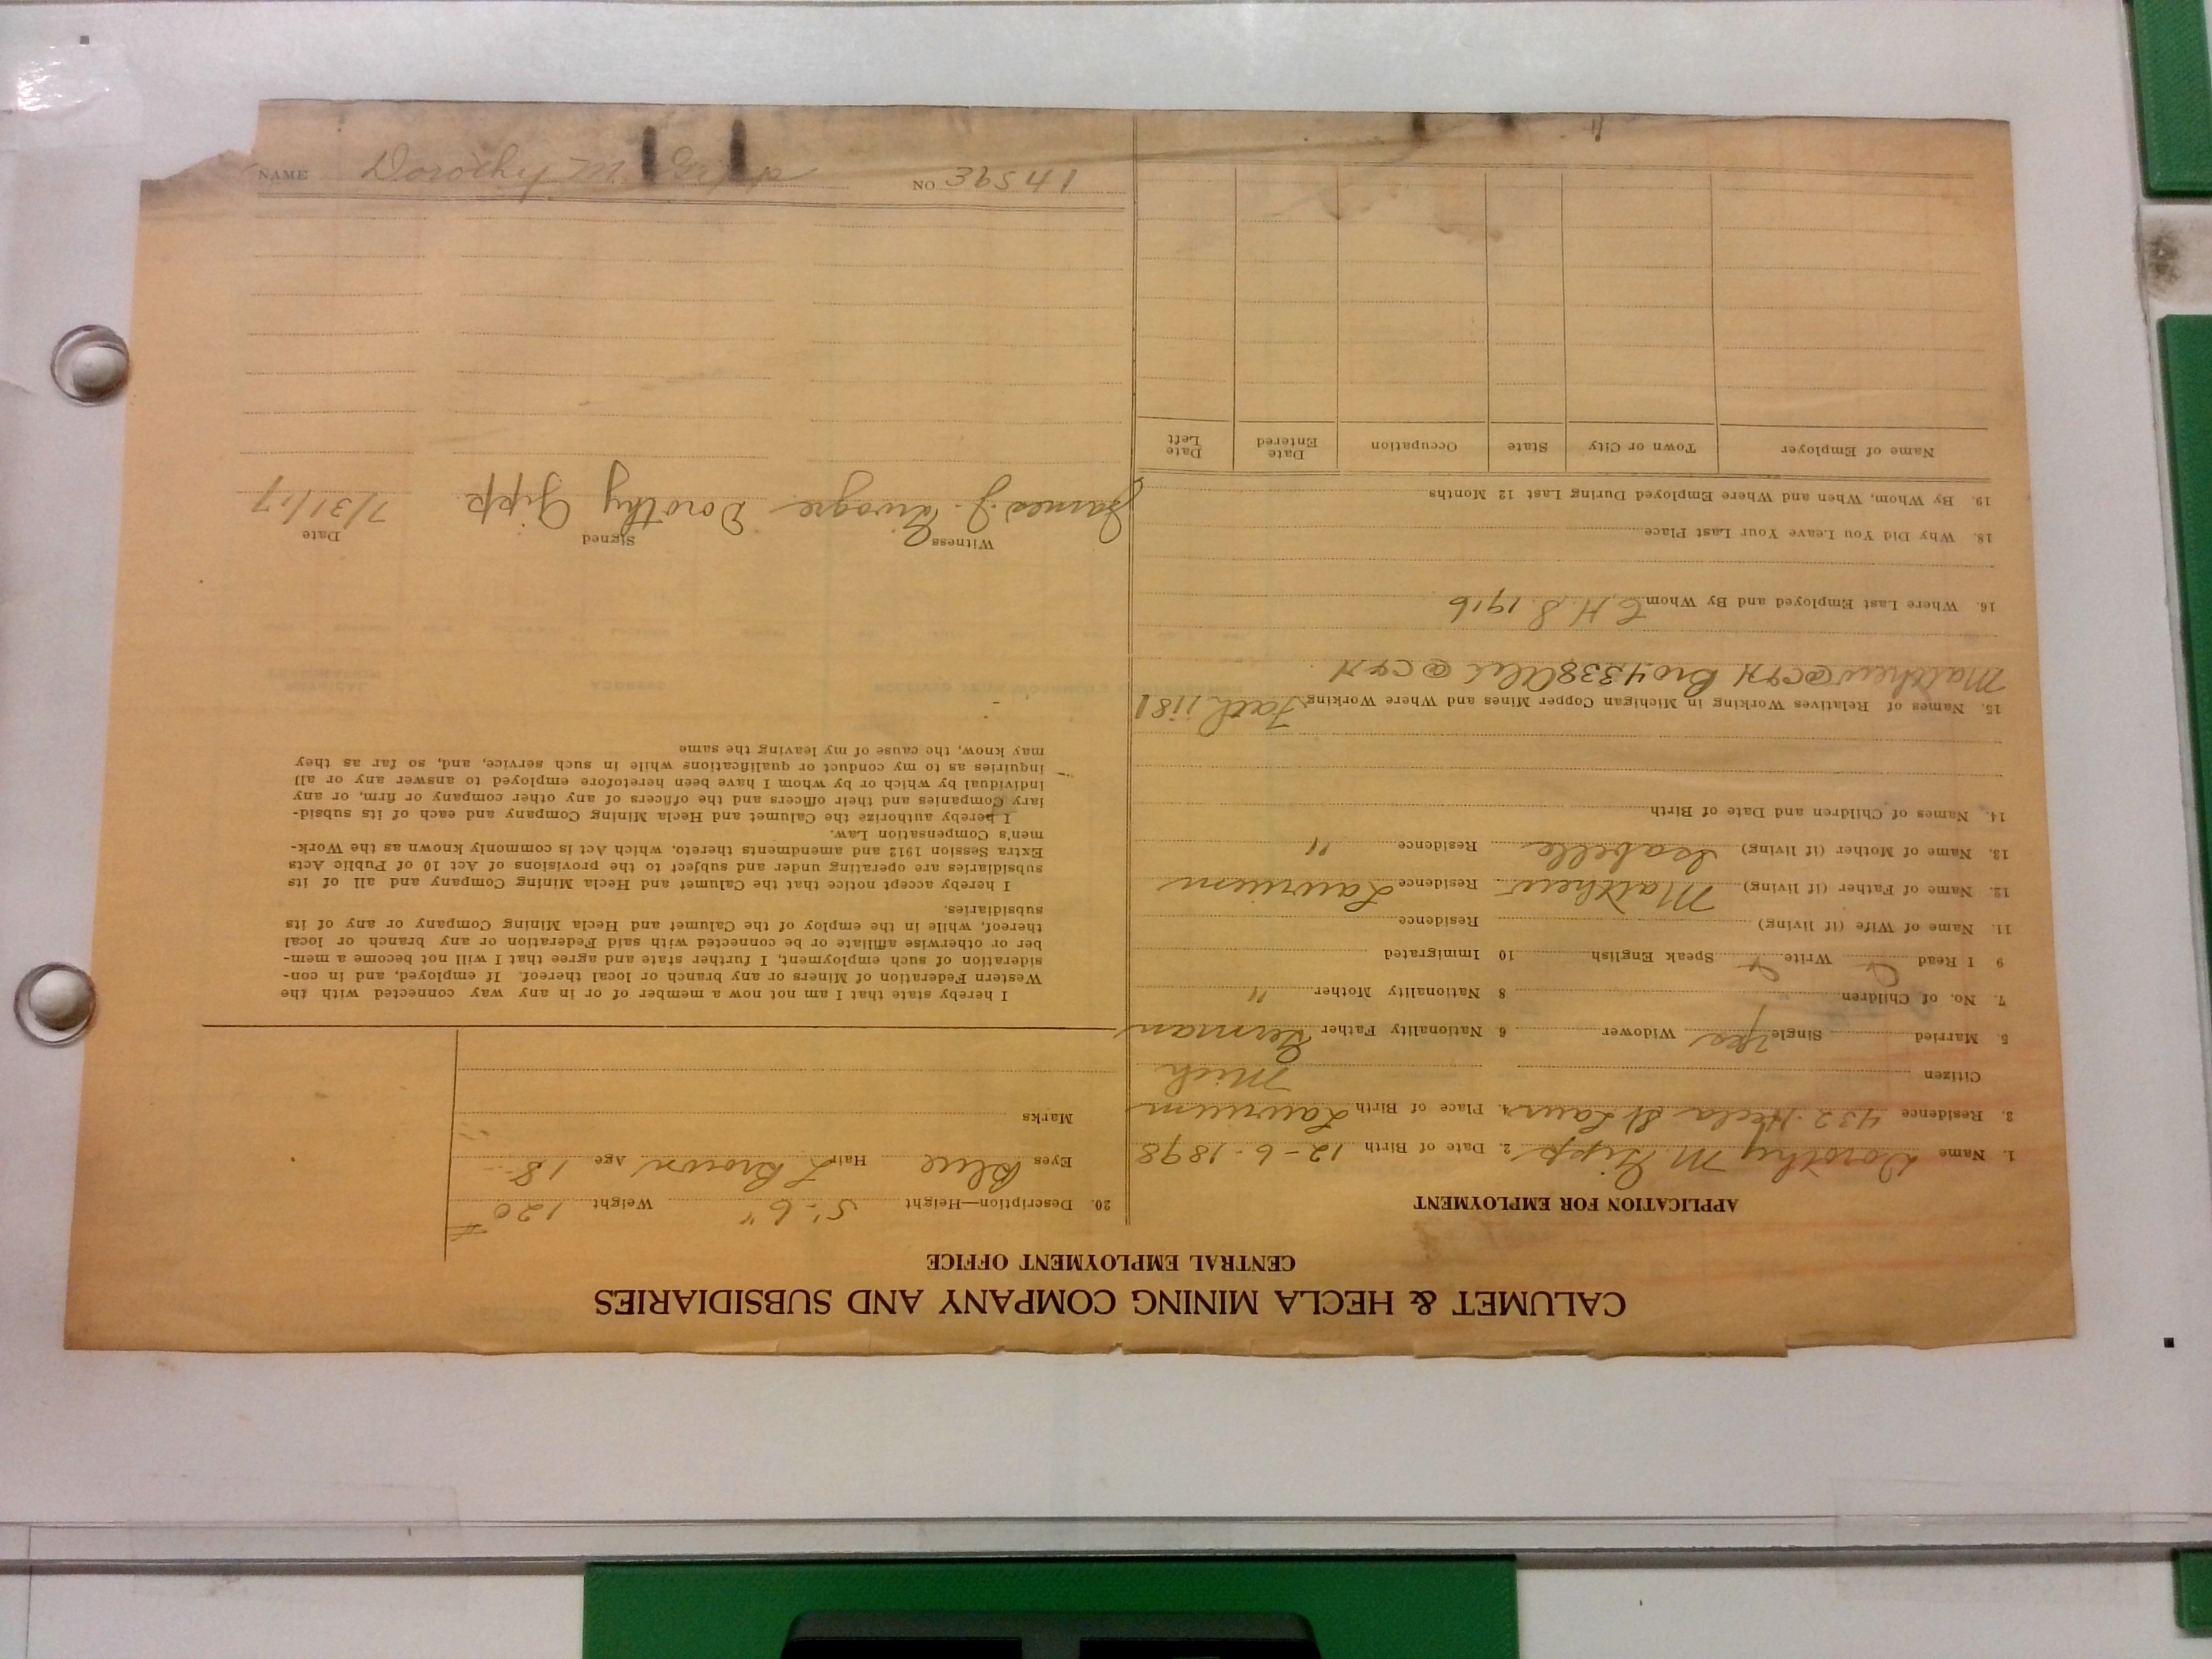 CALUMET & HECLA MINING COMPANY AND SUBSIDIARIES
CENTRAL EMPLOYMENT OFFICE
APPLICATION FOR EMPLOYMENT
1. Name Dorothy M. Gipp 2. Date of Birth 12-6-1898
3. Residence 432 Hecla St Laur. 4. Place of Birth Laurium
Citizen Mich
5. Married Single Yes Widower 6 Nationality Father German
7. No. of Children 8 Nationality Mother "
9 I Read Write Speak English 10 Immigrated
11. Name of Wife (if living) Residence
12. Name of Father (if living) Matthew Residence Laurium
13. Name of Mother (if living) Isabella Residence "
14. Names of Children and Date of Birth
15. Names of Relatives Working in Michigan Copper Mines and Where Working Fath 1181
Matthew @ C&H Bro 4338 Alex @ C&H
16. Where Last Employed and By Whom C.H.S. 1916
18. Why Did You Leave Your Last Place
19. By Whom, When and Where Employed During Last 12 Months
Name of Employer Town or City State Occupation Date Entered Date Left
20. Description—Height 5'-6" Weight 120 #
Eyes Blue Hair L Brown Age 18
Marks
I hereby state that I am not now a member of or in any way connected with the
Western Federation of Miners or any branch or local thereof. If employed, and in con-
sideration of such employment, I further state and agree that I will not become a mem-
ber or otherwise affiliate or be connected with said Federation or any branch or local
thereof, while in the employ of the Calumet and Hecla Mining Company or any of its
subsidiaries.
I hereby accept notice that the Calumet and Hecla Mining Company and all of its
subsidiaries are operating under and subject to the provisions of Act 10 of Public Acts
Extra Session 1912 and amendments thereto, which Act is commonly known as the Work-
men's Compensation Law.
I hereby authorize the Calumet and Hecla Mining Company and each of its subsid-
iary Companies and their officers and the officers of any other company or firm, or any
individual by which or by whom I have been heretofore employed to answer any or all
inquiries as to my conduct or qualifications while in such service, and, so far as they
may know, the cause of my leaving the same
Witness Signed Date
James J. Dorothy Gipp 7/31/17
NAME Dorothy M. Gipp NO 39541